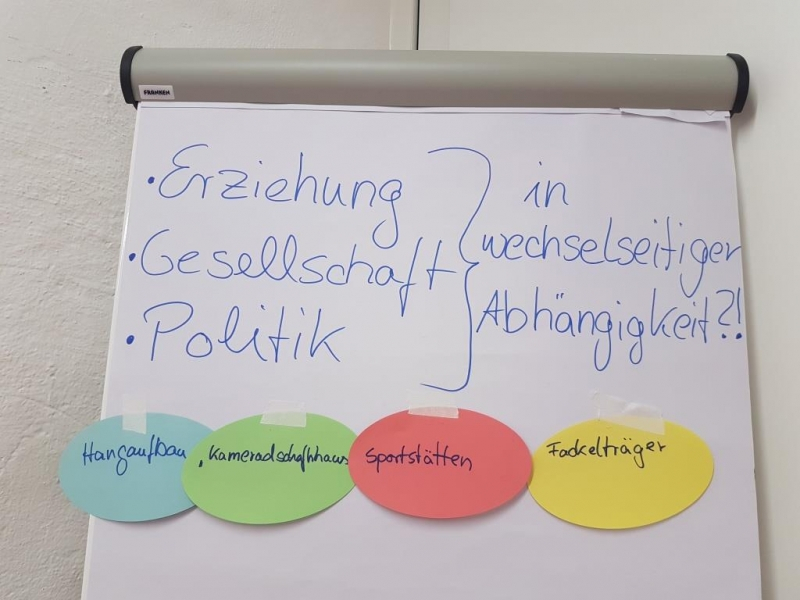 FRANKEN
• Erziehung
• Gesellschaft
• Politik
in
wechselseitiger
Abhängigkeit?!
Hangaufbau
Kameradschaftshaus
Sportstätten
Fackelträger